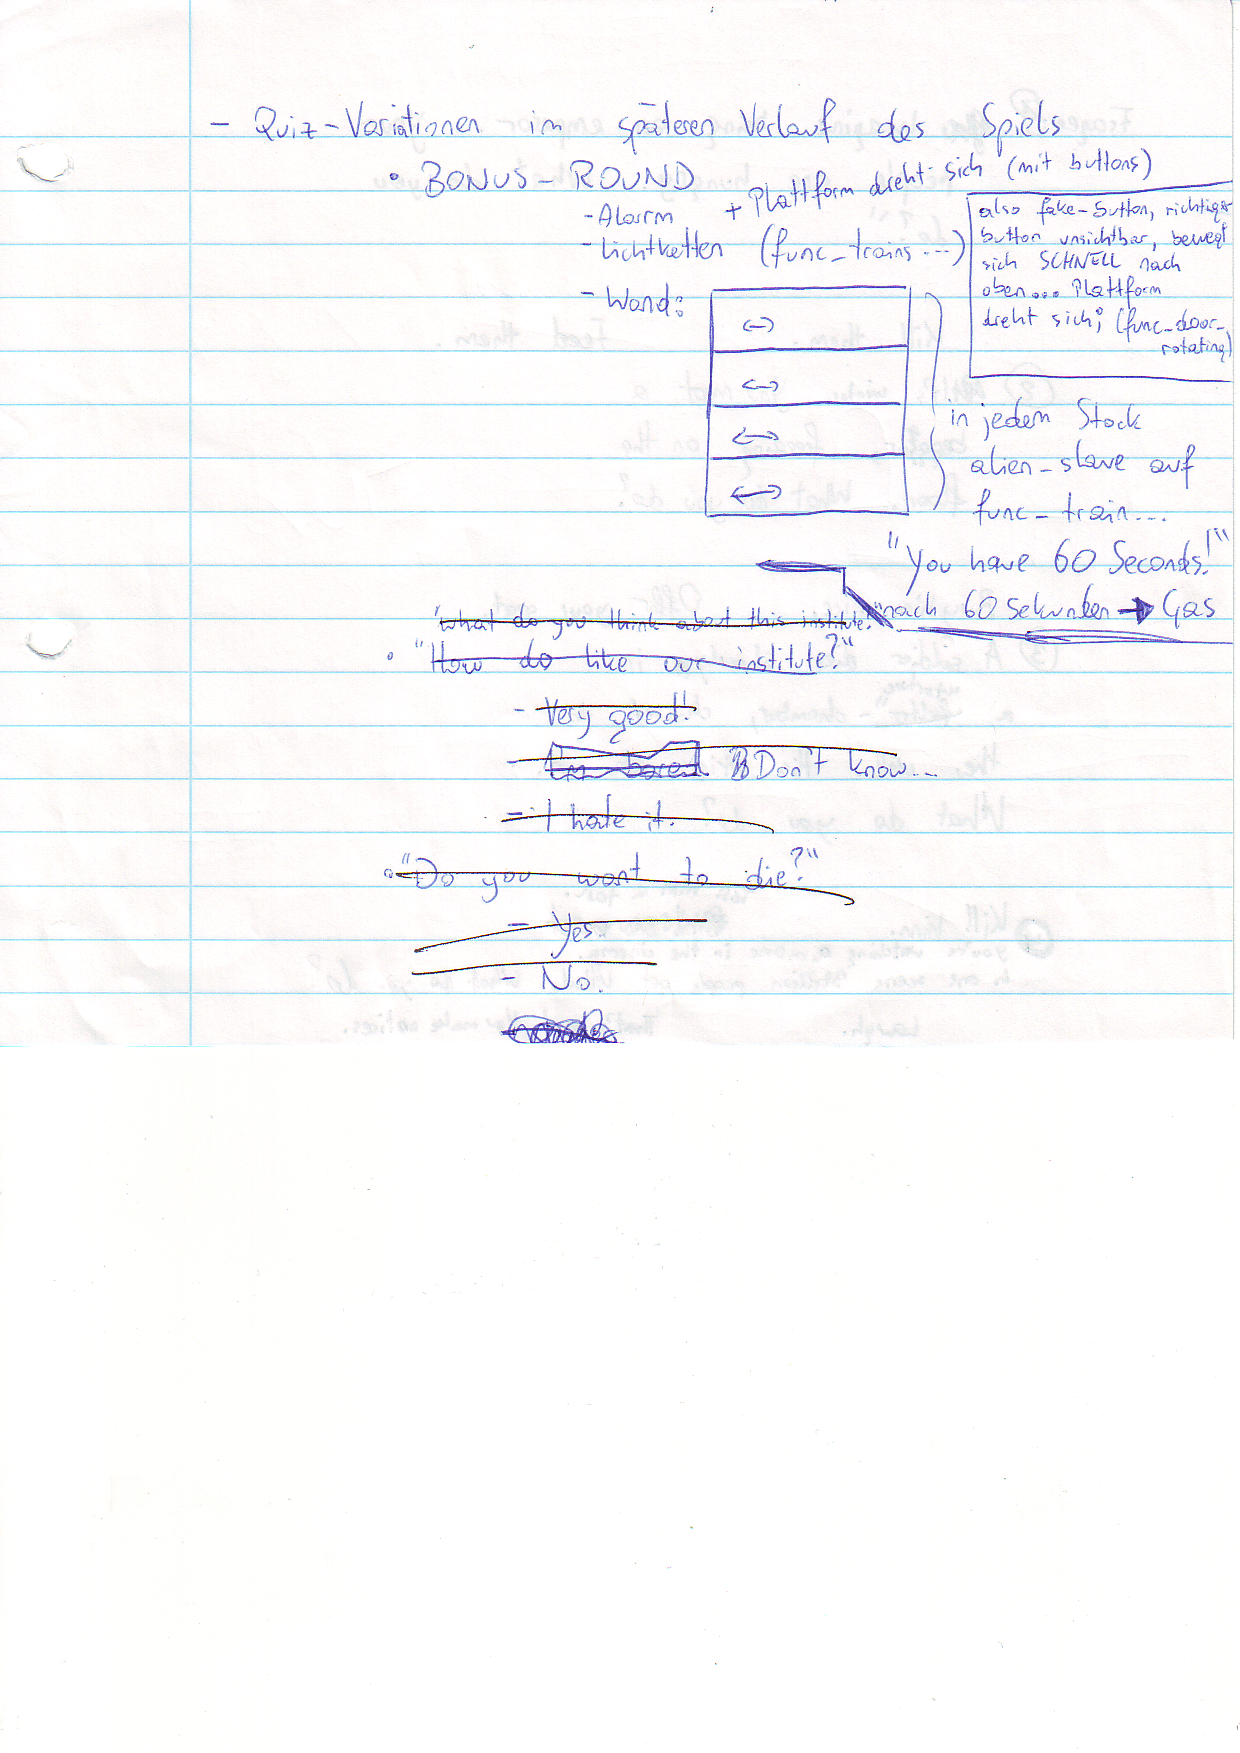 - Quiz-Variationen im späteren Verlauf des Spiels
• BONUS-ROUND
- Alarm + Plattform dreht sich (mit buttons)
- Lichtketten (func_trains...)
also fake-button, richtiger
button unsichtbar, bewegt
sich SCHNELL nach
oben... Plattform
dreht sich; (func_door_
rotating)
- Wand:
in jedem Stock
alien_slave auf
func_train...
"You have 60 Seconds!"
nach 60 Sekunden → Gas
"What do you think about this institute?"
• "How do like our institute?"
- Very good!
I'm bored Don't know...
- I hate it.
• "Do you want to die?"
- Yes.
- No.